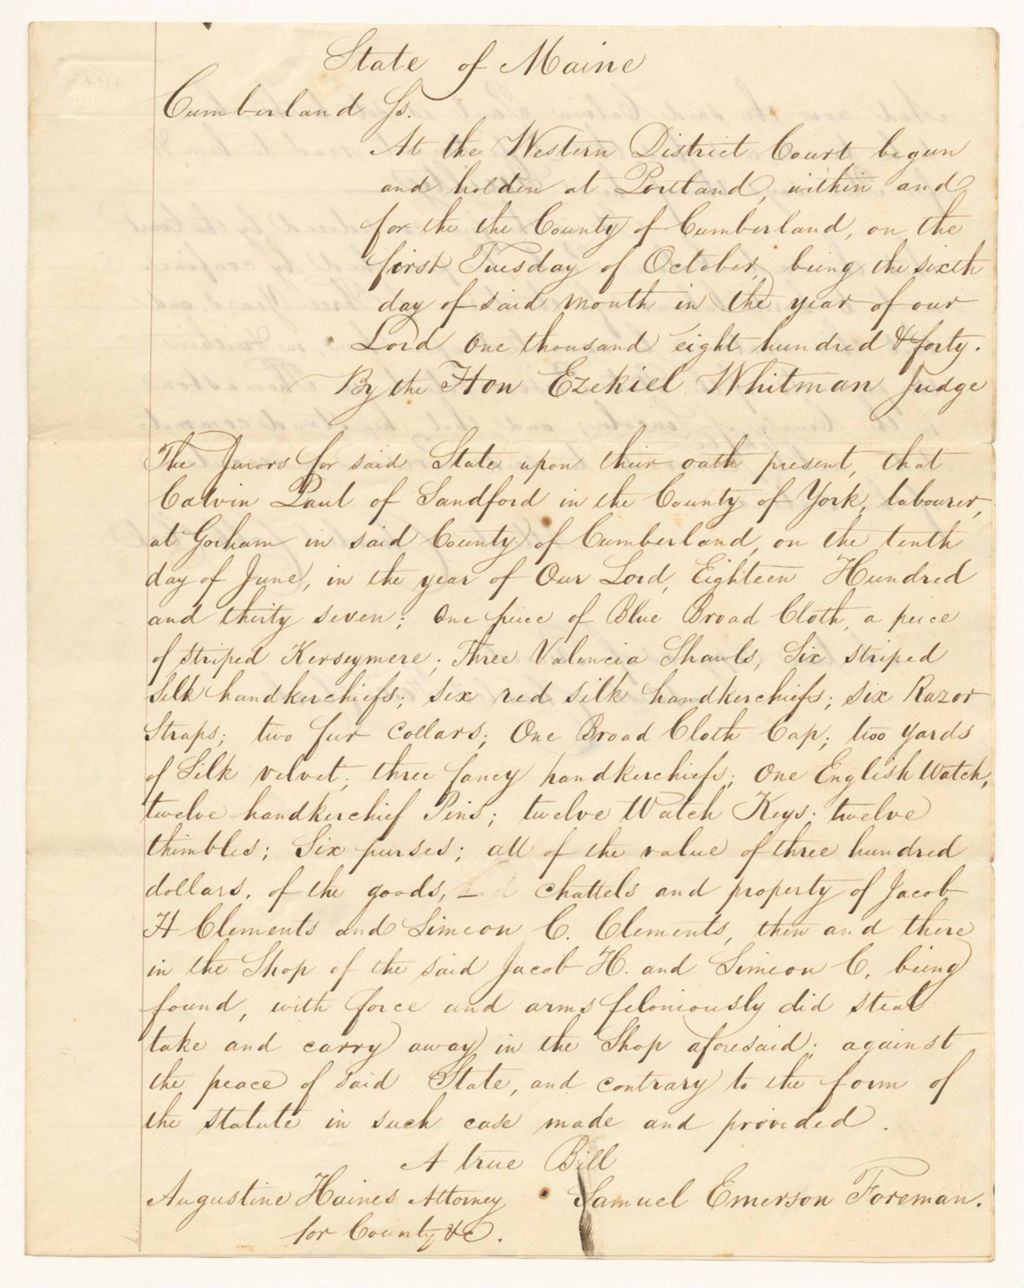 State of Maine
Cumberland Ss.
At the Western District Court, begun
and holden at Portland, within and
for the the County of Cumberland, on the
first Tuesday of October, being the sixth
day of said month in the year of our
Lord one thousand eight hundred & forty.
By the Hon Ezekiel Whitman Judge
The Jurors for said State upon their oath present, that
Calvin Paul of Sandford in the County of York, labourer,
at Gorham in said County of Cumberland, on the tenth
day of June, in the year of Our Lord, Eighteen Hundred
and thirty seven; one piece of Blue Broad Cloth, a peice
of striped Kerseymere; Three Valencia Shawls, Six striped
Silk handkerchiefs; six red silk handkerchiefs; six Razor
Straps; two fur collars; One Broad Cloth Cap; two yards
of Silk velvet; three fancy handkerchiefs; One English Watch,
twelve handkerchief Pins; twelve Watch Keys; twelve
thimbles; Six purses; all of the value of three hundred
dollars, of the goods, chattels and property of Jacob
H Clements and Simeon C. Clements, then and there
in the Shop of the said Jacob H. and Simeon C, being
found, with force and arms feloniously did steal
take and carry away in the Shop aforesaid; against
the peace of said State, and contrary to the form of
the statute in such case made and provided.
A true Bill
Augustine Haines Attorney Samuel Emerson Foreman.
for County &c.